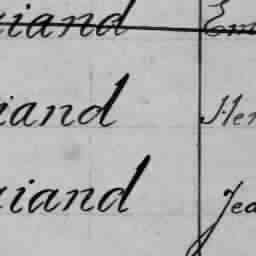 iand Em
iand Hen
iand Jea